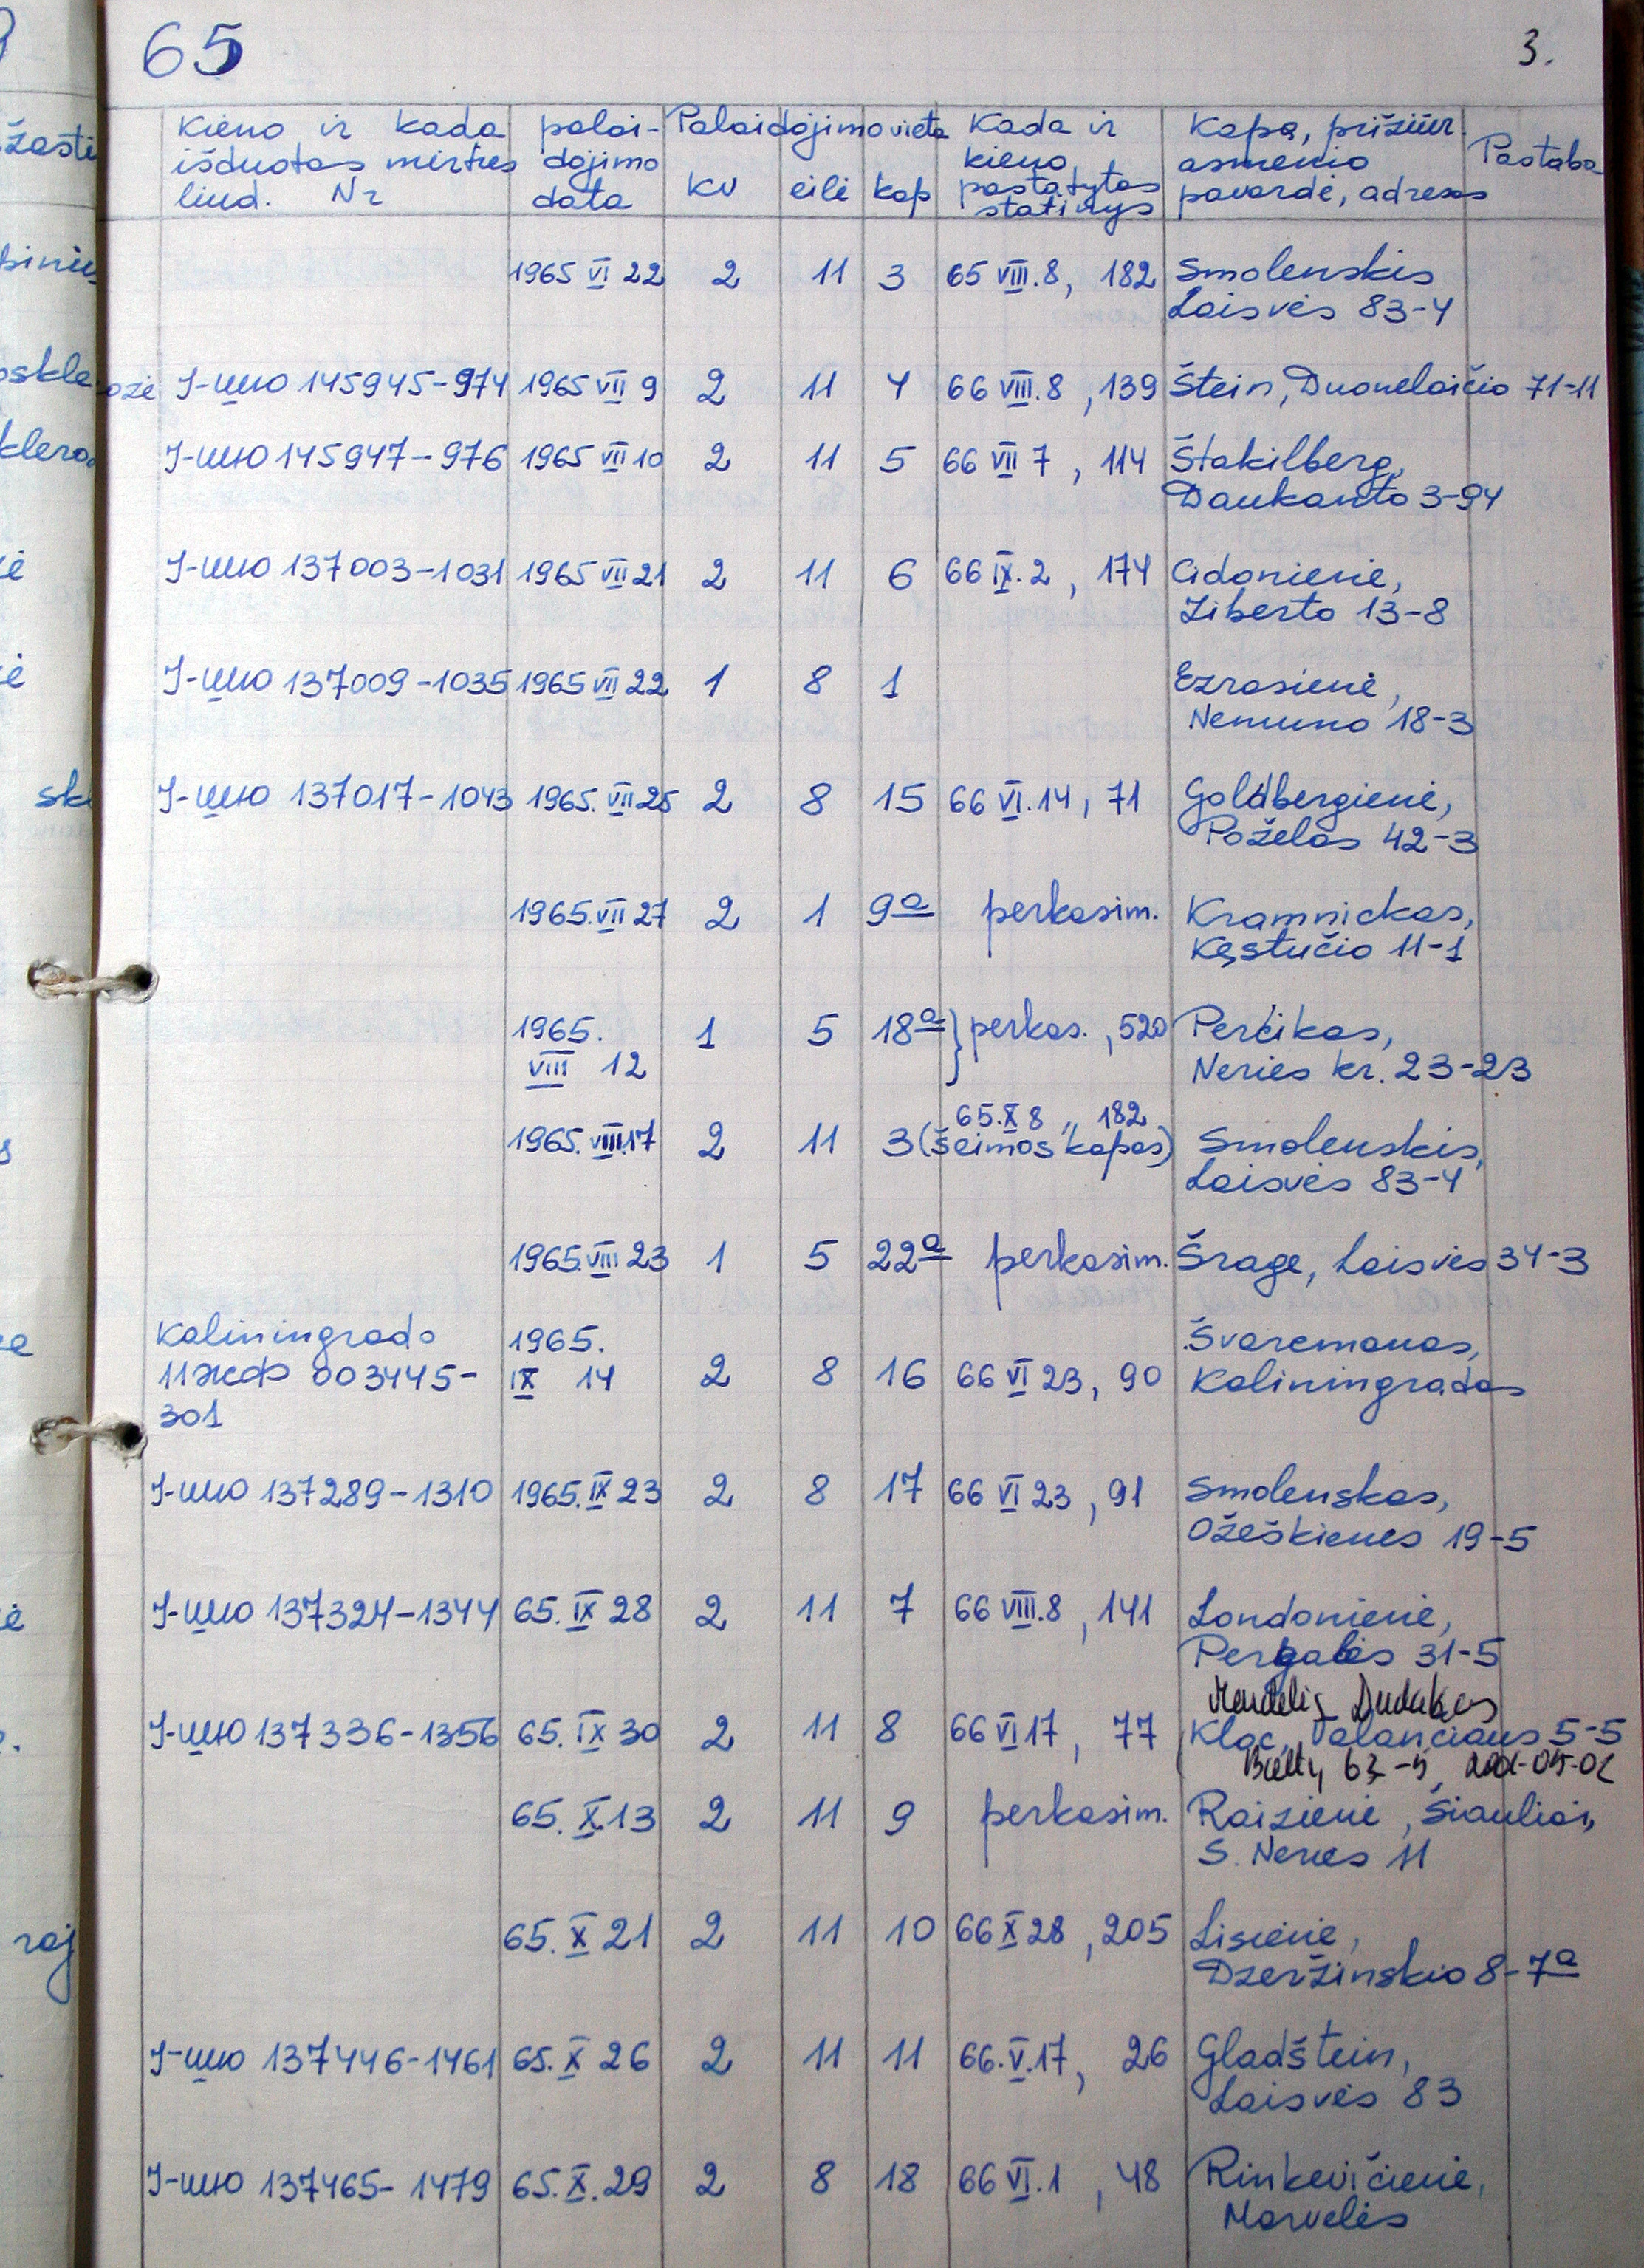 65
3.
Kieno ir kada išduotas mirties liud. Nr
palaidojimo data
Palaidojimo vieta
kv eilė kap
Kada ir kieno pastatytas statinys
Kapą, prižiūr. asmenio pavardė, adresas
Pastaba
1965 VI 22 2 11 3 65 VIII.8, 182 Smolenskis
Laisvės 83-4
J-ШЮ 145945-974 1965 VII 9 2 11 4 66 VIII.8, 139 Štein, Duonelaičio 71-11
J-ШЮ 145947-976 1965 VII 10 2 11 5 66 VII 7, 114 Štakilberg,
Daukanto 3-94
J-ШЮ 137003-1031 1965 VII 21 2 11 6 66 IX.2, 174 Cidonienė,
Ziberto 13-8
J-ШЮ 137009-1035 1965 VII 22 1 8 1 Ezrosienė,
Nemuno 18-3
J-ШЮ 137017-1043 1965. VII 25 2 8 15 66 VI.14, 71 Goldbergienė,
Poželos 42-3
1965. VII 27 2 1 9a perkasim. Kramnickas,
Kęstučio 11-1
1965. 1 5 18a } perkas., 520 Perčikas,
VIII 12 Neries kr. 23-23
65.X 8, 182
1965. VIII.17 2 11 3 (šeimos kapas) Smolenskis,
Laisvės 83-4
1965. VIII 23 1 5 22a perkasim. Šrage, Laisvės 34-3
Kaliningrado 1965. Švarcmanas,
11ЖФ 003445- IX 14 2 8 16 66 VI 23, 90 Kaliningradas
301
J-ШЮ 137289-1310 1965. IX 23 2 8 17 66 VI 23, 91 Smolenskas,
Ožeškienės 19-5
J-ШЮ 137324-1344 65. IX 28 2 11 7 66 VIII.8, 141 Londonienė,
Pergalės 31-5
Mendelis Dudakas
J-ШЮ 137336-1356 65. IX 30 2 11 8 66 VI 17, 77 Kloc, Valančiaus 5-5
63-5,
65. X.13 2 11 9 perkasim. Raizienė, Šiauliai,
S. Neries 11
65. X 21 2 11 10 66 X 28, 205 Lisienė,
Dzeržinskio 8-7a
J-ШЮ 137446-1461 65. X 26 2 11 11 66.V.17, 26 Gladštein,
Laisvės 83
J-ШЮ 137465-1479 65. X. 29 2 8 18 66 VI.1, 48 Rinkevičienė,
Marvelės